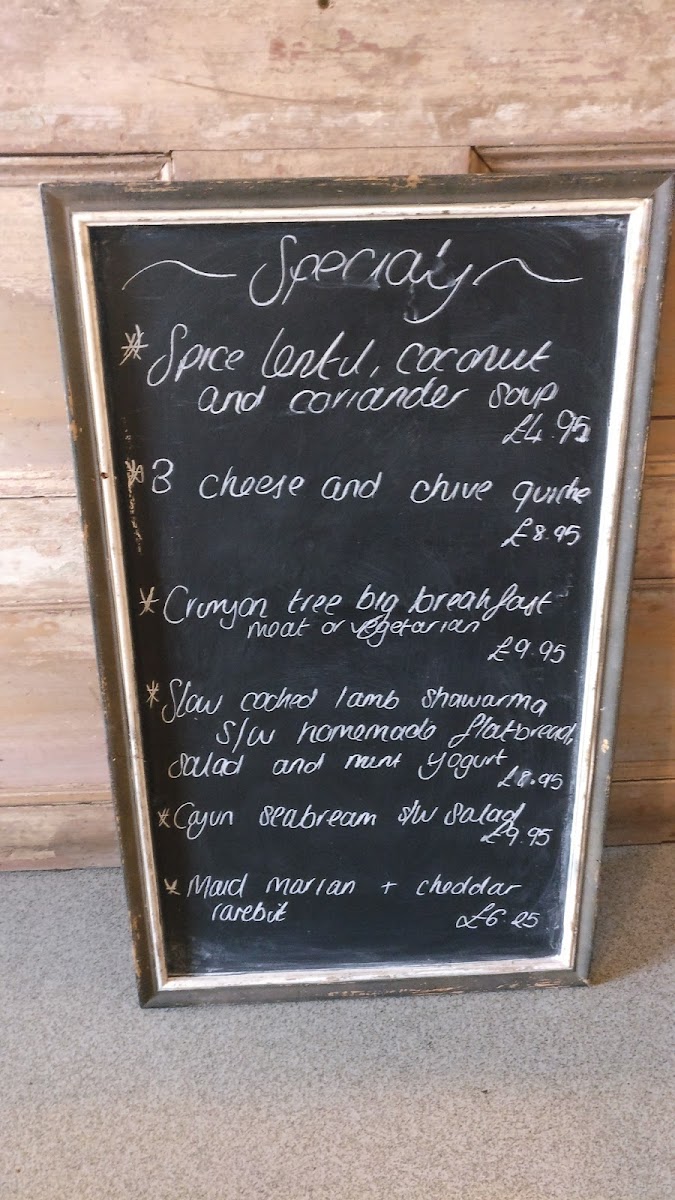 Specials
* Spice lentil, coconut
and coriander soup
£4.95
* 3 cheese and chive quiche
£8.95
* Crumzon tree big breakfast
meat or vegetarian
£9.95
* Slow cooked lamb shawarma
s/w homemade flatbread,
salad and mint yogurt
£8.95
* Cajun seabream s/w salad
£9.95
* Maid marian + cheddar
rarebit
£6.25